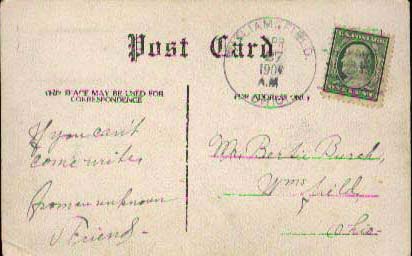 Post Card
WILLIAMSFIELD,
APR
1909
A.M.
OHIO
THIS SPACE MAY BE USED FOR
CORRESPONDENCE
FOR ADDRESS ONLY
ONE CENT
If you can't
come write,
from an unknown
Friend-
Mr Bertie Burch,
Wms field,
Ohio-